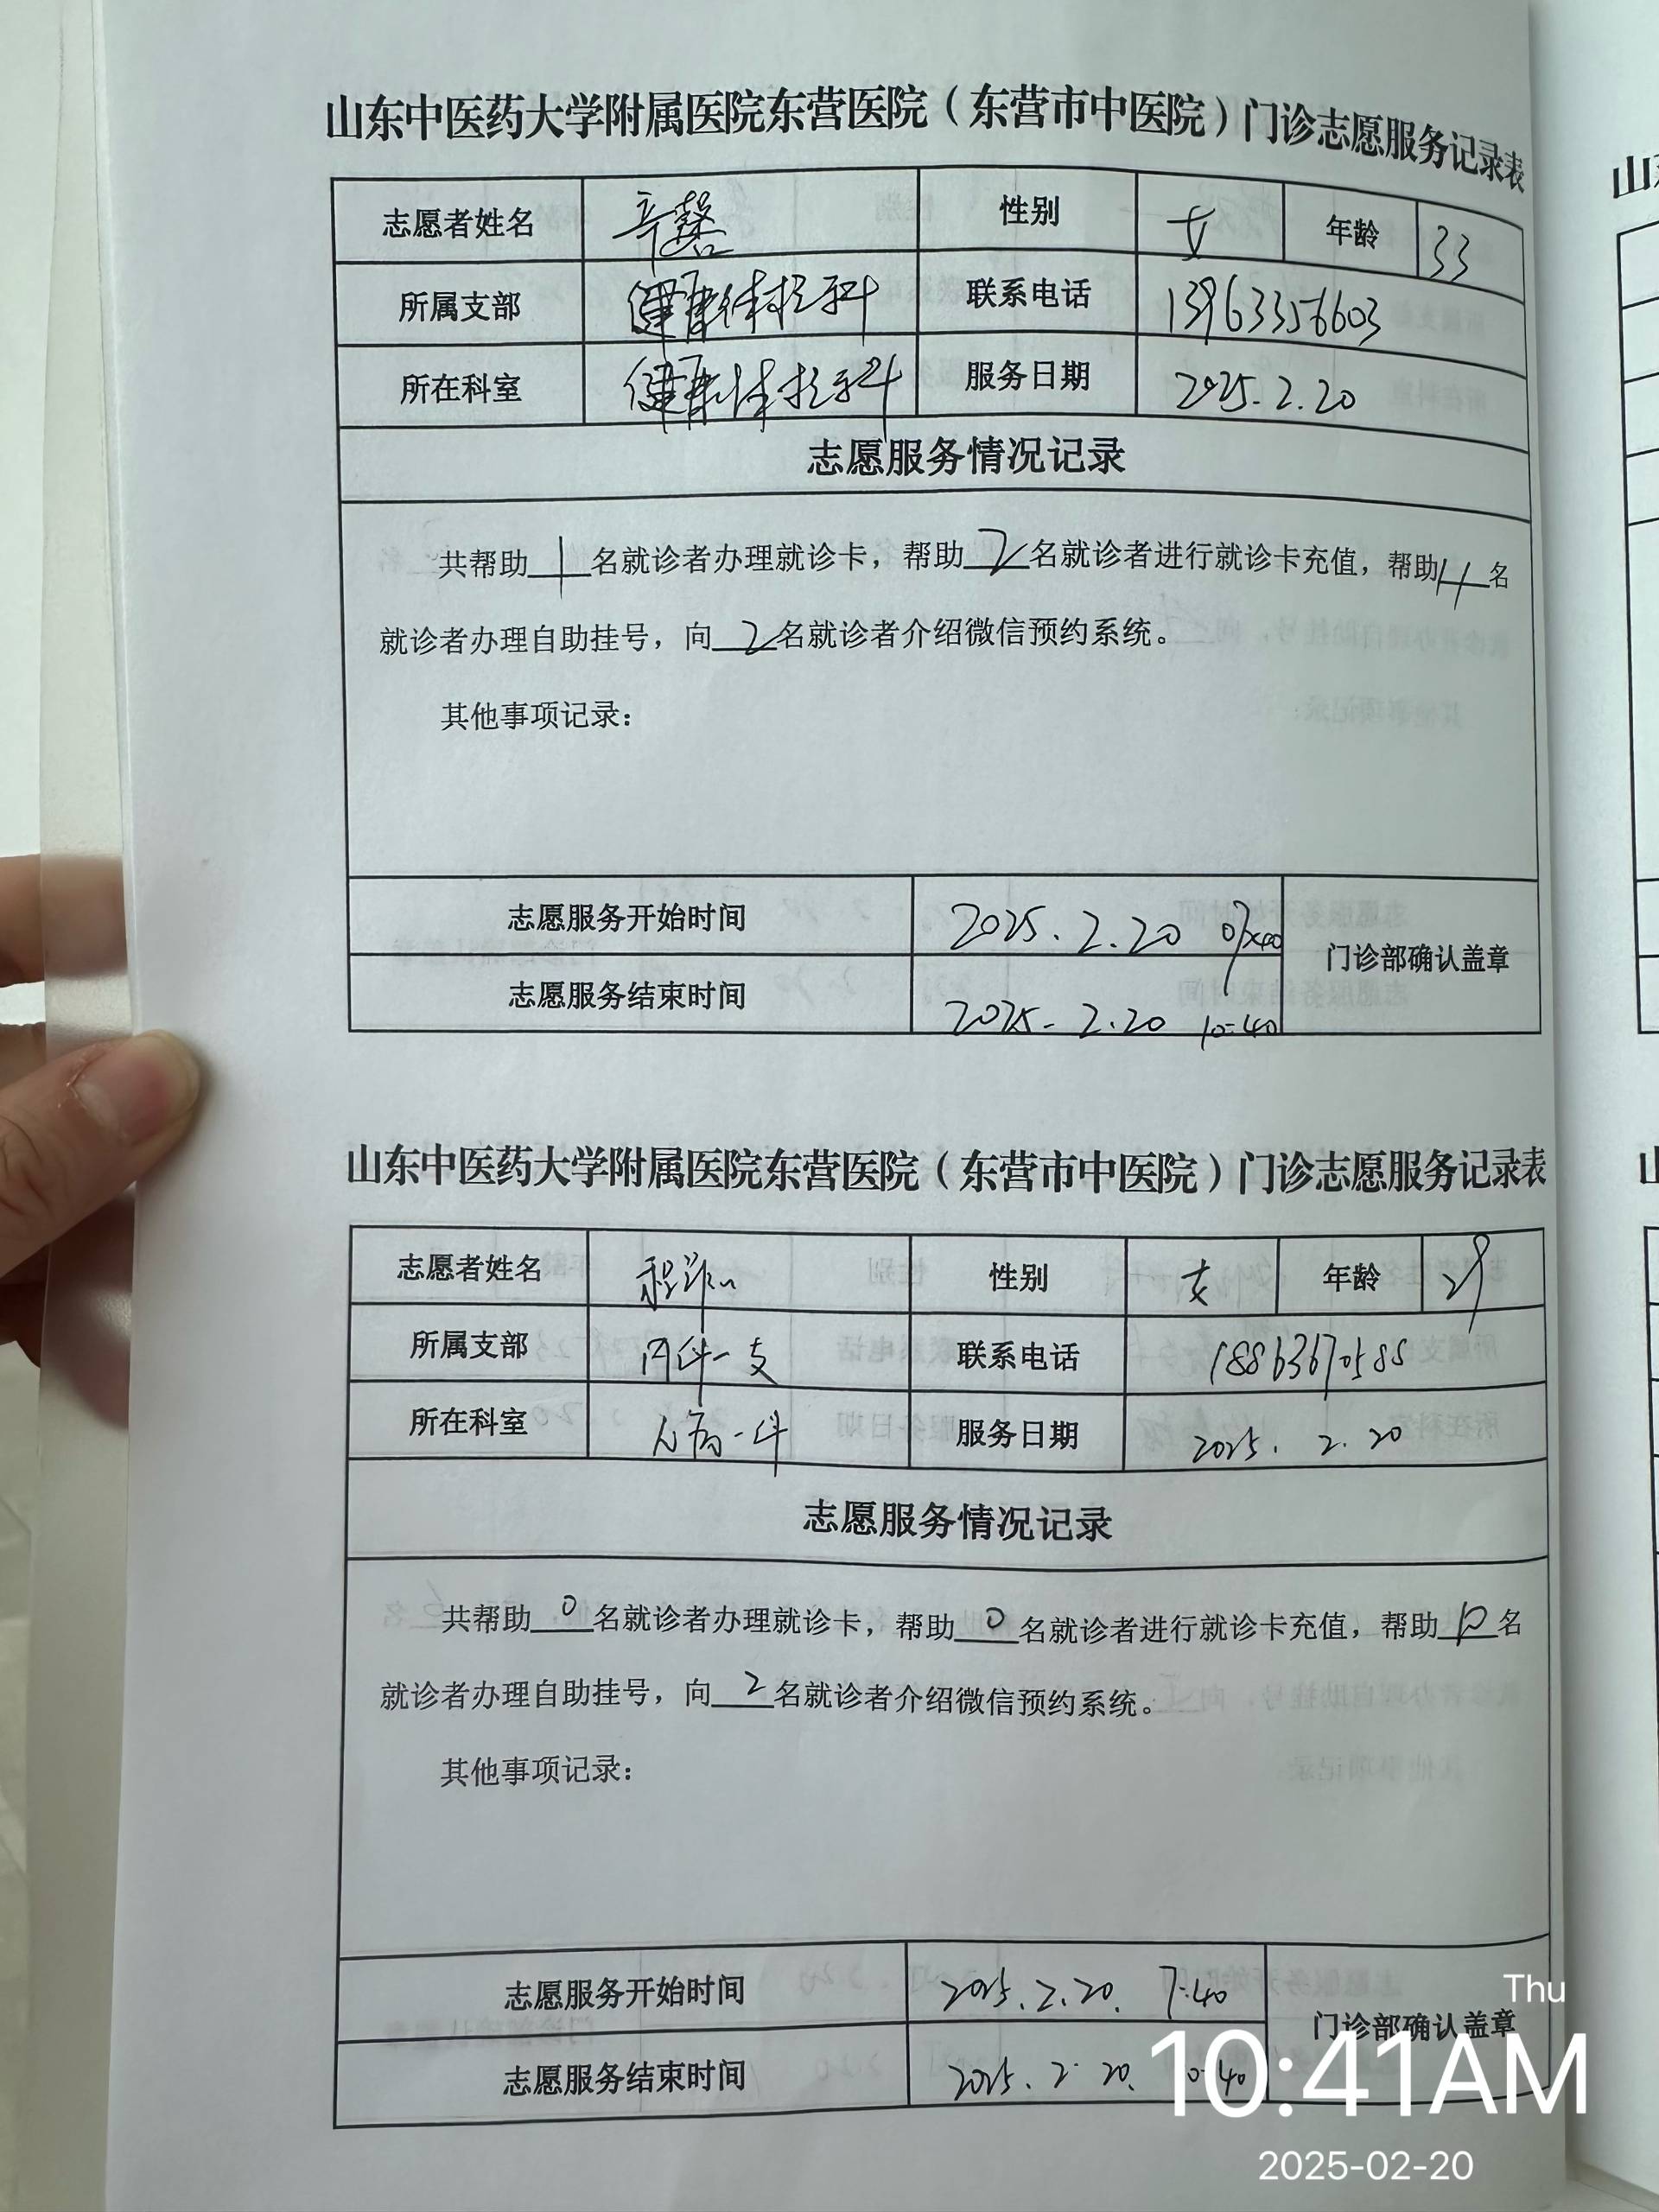 山东中医药大学附属医院东营医院（东营市中医院）门诊志愿服务记录表
志愿者姓名 辛馨 性别 女 年龄 33
所属支部 健康体检科 联系电话 13963356603
所在科室 健康体检科 服务日期 2025.2.20
志愿服务情况记录
共帮助1名就诊者办理就诊卡，帮助2名就诊者进行就诊卡充值，帮助4名
就诊者办理自助挂号，向2名就诊者介绍微信预约系统。
其他事项记录：
志愿服务开始时间 2025.2.20
门诊部确认盖章
志愿服务结束时间 2025.2.20 10:40
山东中医药大学附属医院东营医院（东营市中医院）门诊志愿服务记录表
志愿者姓名 性别 女 年龄 29
所属支部 内科一支 联系电话 18863670585
所在科室 心病一科 服务日期 2025.2.20
志愿服务情况记录
共帮助0名就诊者办理就诊卡，帮助0名就诊者进行就诊卡充值，帮助名
就诊者办理自助挂号，向2名就诊者介绍微信预约系统。
其他事项记录：
志愿服务开始时间 2025.2.20. 7:40
门诊部确认盖章
志愿服务结束时间 2025.2.20. 10:40
Thu
10:41AM
2025-02-20